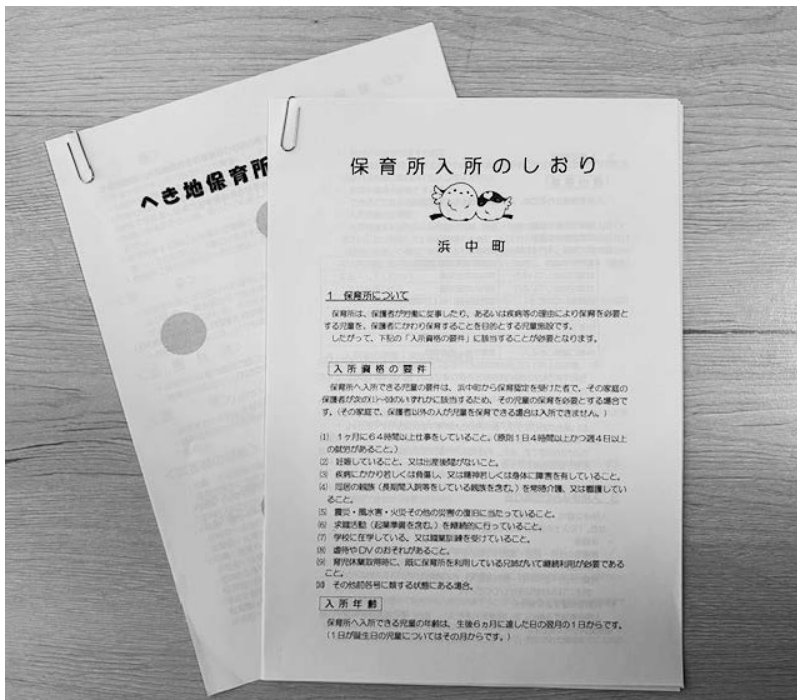 へき地保育所
保育所入所のしおり
浜中町
1 保育所について
保育所は、保護者が労働に従事したり、あるいは疾病等の理由により保育を必要と
する児童を、保護者にかわり保育することを目的とする児童施設です。
したがって、下記の「入所資格の要件」に該当することが必要となります。
入所資格の要件
保育所へ入所できる児童の要件は、浜中町から保育認定を受けた者で、その家庭の
保護者が次の(1)~(10)のいずれかに該当するため、その児童の保育を必要とする場合で
す。(その家庭で、保護者以外の人が児童を保育できる場合は入所できません。)
(1) 1ヶ月に64時間以上仕事をしていること。(原則1日4時間以上かつ週4日以上
の就労があること。)
(2) 妊娠していること、又は出産後間がないこと。
(3) 疾病にかかり若しくは負傷し、又は精神若しくは身体に障害を有していること。
(4) 同居の親族(長期間入院等をしている親族を含む。)を常時介護、又は看護してい
ること。
(5) 震災・風水害・火災その他の災害の復旧に当たっていること。
(6) 求職活動(起業準備を含む。)を継続的に行っていること。
(7) 学校に在学している、又は職業訓練を受けていること。
(8) 虐待やDVのおそれがあること。
(9) 育児休業取得時に、既に保育所を利用している兄姉がいて継続利用が必要である
こと。
(10) その他前各号に類する状態にある場合。
入所年齢
保育所へ入所できる児童の年齢は、生後6ヵ月に達した日の翌月の1日からです。
(1日が誕生日の児童についてはその月からです。)